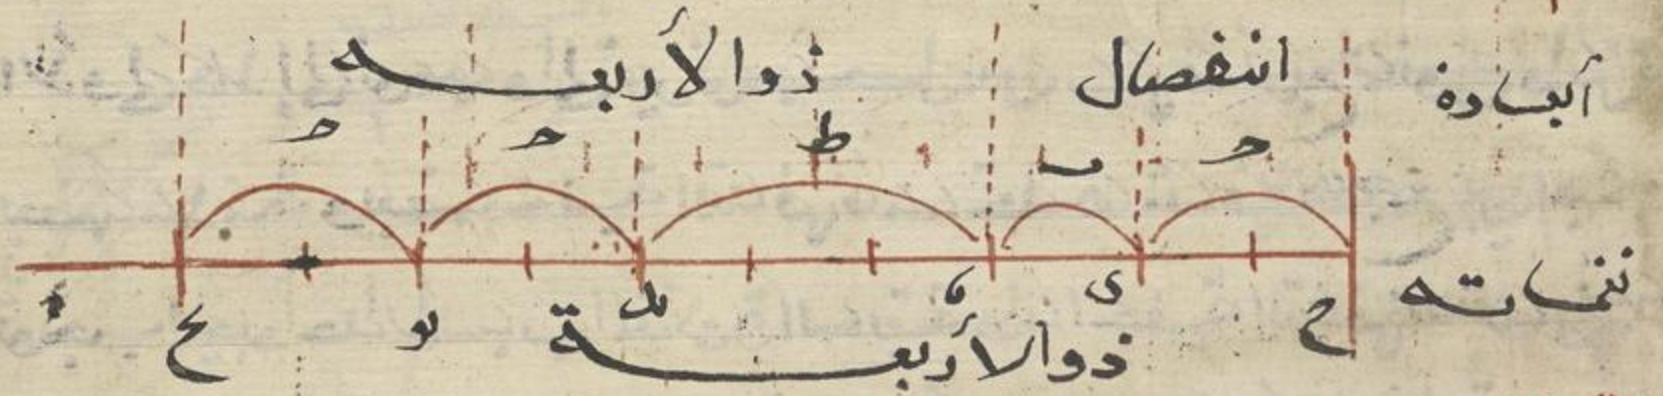 أبعاده انفصال ذو الأربعه
ح ب ح ط ح ح
نغماته ح ى ه يد يو يح
ذو الأربعة